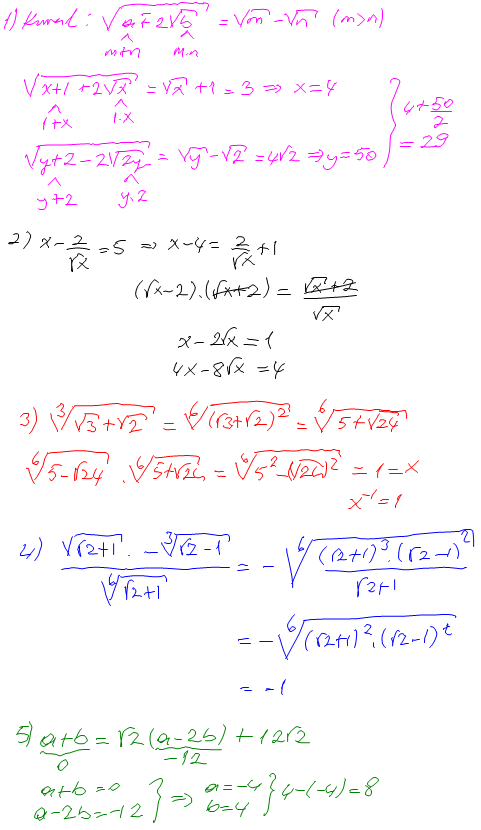 1) Kural: √(a∓2√b) = √m - √n (m>n)
m+n m.n
√(x+1+2√x) = √x + 1 = 3 ⇒ x=4
1+x 1.x
√(y+2-2√2y) = √y - √2 = 4√2 ⇒ y=50
y+2 y.2
4+50/2 = 29
2) x - 2/√x = 5 ⇒ x-4 = 2/√x + 1
(√x-2).(√x+2) = (√x+2)/√x
x-2√x = 1
4x-8√x = 4
3) ∛(√3+√2) = ⁶√((√3+√2)²) = ⁶√(5+√24)
⁶√(5-√24) . ⁶√(5+√24) = ⁶√(5²-(√24)²) = 1 = x
x⁻¹ = 1
4) (√(√2+1) . -∛(√2-1)) / ⁶√(√2+1) = - ⁶√((√2+1)³.(√2-1)²/(√2+1))
= - ⁶√((√2+1)².(√2-1)ᵗ)
= -1
5) a+b = √2(a-2b) + 12√2
0 -12
a+b=0
a-2b=-12
} ⇒ a=-4
b=4
} 4-(-4)=8